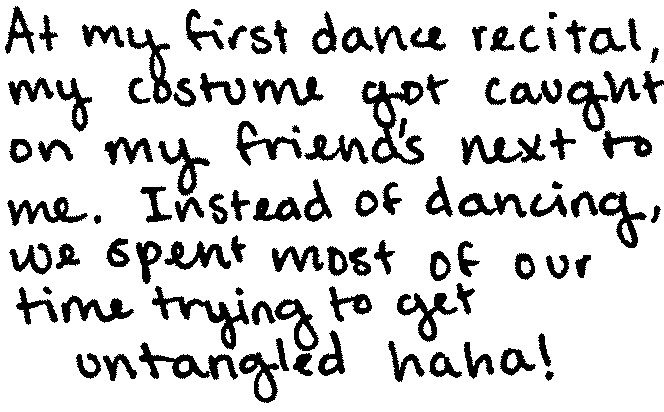 At my first dance recital,
my costume got caught
on my friend's next to
me. Instead of dancing,
we spent most of our
time trying to get
untangled haha!